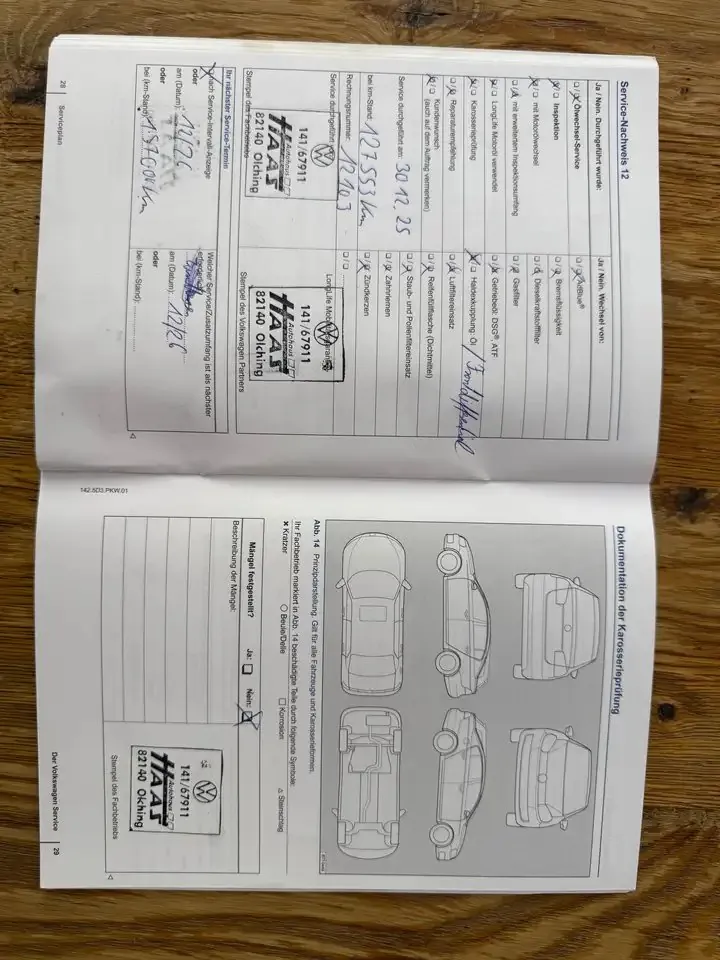 Service-Nachweis 12
Ja / Nein. Durchgeführt wurde:
Ölwechsel-Service
Inspektion
mit Motorölwechsel
mit erweitertem Inspektionsumfang
LongLife Motoröl verwendet
Karosserieprüfung
Reparaturempfehlung
Kundenwunsch
(auch auf dem Auftrag vermerken)
Service durchgeführt am: 30.12.25
bei km-Stand: 127553 Km
Rechnungsnummer: 12103
Service durchgeführt
141/67911
Autohaus
HAAS
82140 Olching
Stempel des Fachbetriebs
Ja / Nein. Wechsel von:
AdBlue®
Bremsflüssigkeit
Dieselkraftstofffilter
Gasfilter
Getriebeöl: DSG® ATF
Haldexkupplung Öl
Luftfiltereinsatz
Reifenfüllflasche (Dichtmittel)
Staub- und Pollenfiltereinsatz
Zahnriemen
Zündkerzen
LongLife
141/67911
Autohaus
HAAS
82140 Olching
Stempel des Volkswagen Partners
Ihr nächster Service-Termin
nach Service-Intervall-Anzeige
oder
am (Datum): 12/26
oder
bei (km-Stand):
Welcher Service/Zusatzumfang ist als nächster
am (Datum): 12/26
oder
bei (km-Stand):
28 Serviceplan
142.5D3.PKW.01
Dokumentation der Karosserieprüfung
Abb. 14 Prinzipdarstellung. Gilt für alle Fahrzeuge und Karosserieformen.
Ihr Fachbetrieb markiert in Abb. 14 beschädigte Teile durch folgende Symbole:
× Kratzer ○ Beule/Delle □ Korrosion △ Steinschlag
Mängel festgestellt? Ja: Nein:
Beschreibung der Mängel:
141/67911
Autohaus
HAAS
82140 Olching
Stempel des Fachbetriebs
Der Volkswagen Service 29